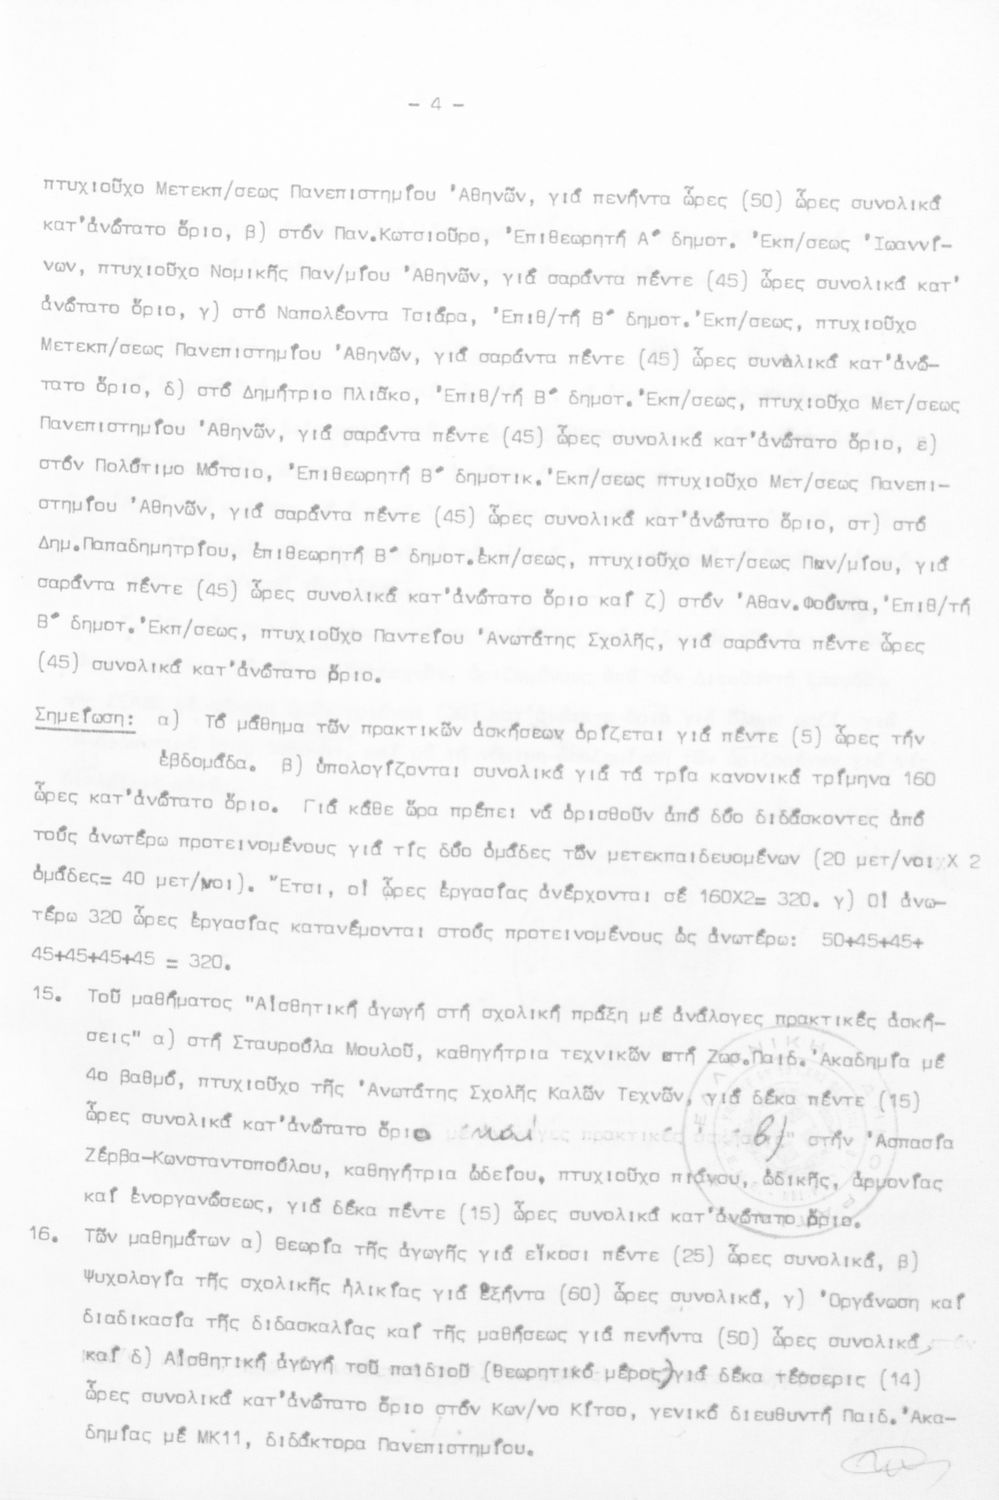 - 4 -
πτυχιοῦχο Μετεκπ/σεως Πανεπιστημίου 'Αθηνῶν, γιά πενήντα ὧρες (50) ὧρες συνολικά
κατ'ἀνώτατο ὅριο, β) στόν Παν.Κωτσιοῦρο, 'Επιθεωρητή Α΄ δημοτ. 'Εκπ/σεως 'Ιωαννί-
νων, πτυχιοῦχο Νομικῆς Παν/μίου 'Αθηνῶν, γιά σαράντα πέντε (45) ὧρες συνολικά κατ'
ἀνώτατο ὅριο, γ) στό Ναπολέοντα Τσιάρα, 'Επιθ/τή Β΄ δημοτ.'Εκπ/σεως, πτυχιοῦχο
Μετεκπ/σεως Πανεπιστημίου 'Αθηνῶν, γιά σαράντα πέντε (45) ὧρες συνολικά κατ'ἀνώ-
τατο ὅριο, δ) στό Δημήτριο Πλιάκο, 'Επιθ/τή Β΄ δημοτ.'Εκπ/σεως, πτυχιοῦχο Μετ/σεως
Πανεπιστημίου 'Αθηνῶν, γιά σαράντα πέντε (45) ὧρες συνολικά κατ'ἀνώτατο ὅριο, ε)
στόν Πολύτιμο Μότσιο, 'Επιθεωρητή Β΄ δημοτικ.'Εκπ/σεως πτυχιοῦχο Μετ/σεως Πανεπι-
στημίου 'Αθηνῶν, γιά σαράντα πέντε (45) ὧρες συνολικά κατ'ἀνώτατο ὅριο, στ) στό
Δημ.Παπαδημητρίου, ἐπιθεωρητή Β΄ δημοτ.ἐκπ/σεως, πτυχιοῦχο Μετ/σεως Παν/μίου, γιά
σαράντα πέντε (45) ὧρες συνολικά κατ'ἀνώτατο ὅριο καί ζ) στόν 'Αθαν.Φούντα,'Επιθ/τή
Β΄ δημοτ.'Εκπ/σεως, πτυχιοῦχο Παντείου 'Ανωτάτης Σχολῆς, γιά σαράντα πέντε ὧρες
(45) συνολικά κατ'ἀνώτατο ὅριο.
Σημείωση: α) Τό μάθημα τῶν πρακτικῶν ἀσκήσεων ὁρίζεται γιά πέντε (5) ὧρες τήν
ἑβδομάδα. β) ὑπολογίζονται συνολικά γιά τά τρία κανονικά τρίμηνα 160
ὧρες κατ'ἀνώτατο ὅριο. Γιά κάθε ὥρα πρέπει νά ὁρισθοῦν ἀπό δύο διδάσκοντες ἀπό
τούς ἀνωτέρω προτεινομένους γιά τίς δύο ὁμάδες τῶν μετεκπαιδευομένων (20 μετ/νοι Χ 2
ὁμάδες= 40 μετ/νοι). "Ετσι, οἱ ὧρες ἐργασίας ἀνέρχονται σέ 160Χ2= 320. γ) Οἱ ἀνω-
τέρω 320 ὧρες ἐργασίας κατανέμονται στούς προτεινομένους ὡς ἀνωτέρω: 50+45+45+
45+45+45+45 = 320.
15. Τοῦ μαθήματος "Αἰσθητική ἀγωγή στή σχολική πράξη μέ ἀνάλογες πρακτικές ἀσκή-
σεις" α) στή Σταυρούλα Μουλοῦ, καθηγήτρια τεχνικῶν στή Ζωσ.Παιδ.'Ακαδημία μέ
4ο βαθμό, πτυχιοῦχο τῆς 'Ανωτάτης Σχολῆς Καλῶν Τεχνῶν, γιά δέκα πέντε (15)
ὧρες συνολικά κατ'ἀνώτατο ὅριο καί β) στήν 'Ασπασία
Ζέρβα-Κωνσταντοπούλου, καθηγήτρια ὠδείου, πτυχιοῦχο πιάνου, ὠδικῆς, ἁρμονίας
καί ἐνοργανώσεως, γιά δέκα πέντε (15) ὧρες συνολικά κατ'ἀνώτατο ὅριο.
16. Τῶν μαθημάτων α) Θεωρία τῆς ἀγωγῆς γιά εἴκοσι πέντε (25) ὧρες συνολικά, β)
Ψυχολογία τῆς σχολικῆς ἡλικίας γιά ἑξήντα (60) ὧρες συνολικά, γ) 'Οργάνωση καί
διαδικασία τῆς διδασκαλίας καί τῆς μαθήσεως γιά πενήντα (50) ὧρες συνολικά,
καί δ) Αἰσθητική ἀγωγή τοῦ παιδιοῦ (θεωρητικό μέρος) γιά δέκα τέσσερις (14)
ὧρες συνολικά κατ'ἀνώτατο ὅριο στόν Κων/νο Κίτσο, γενικό διευθυντή Παιδ.'Ακα-
δημίας μέ ΜΚ11, διδάκτορα Πανεπιστημίου.